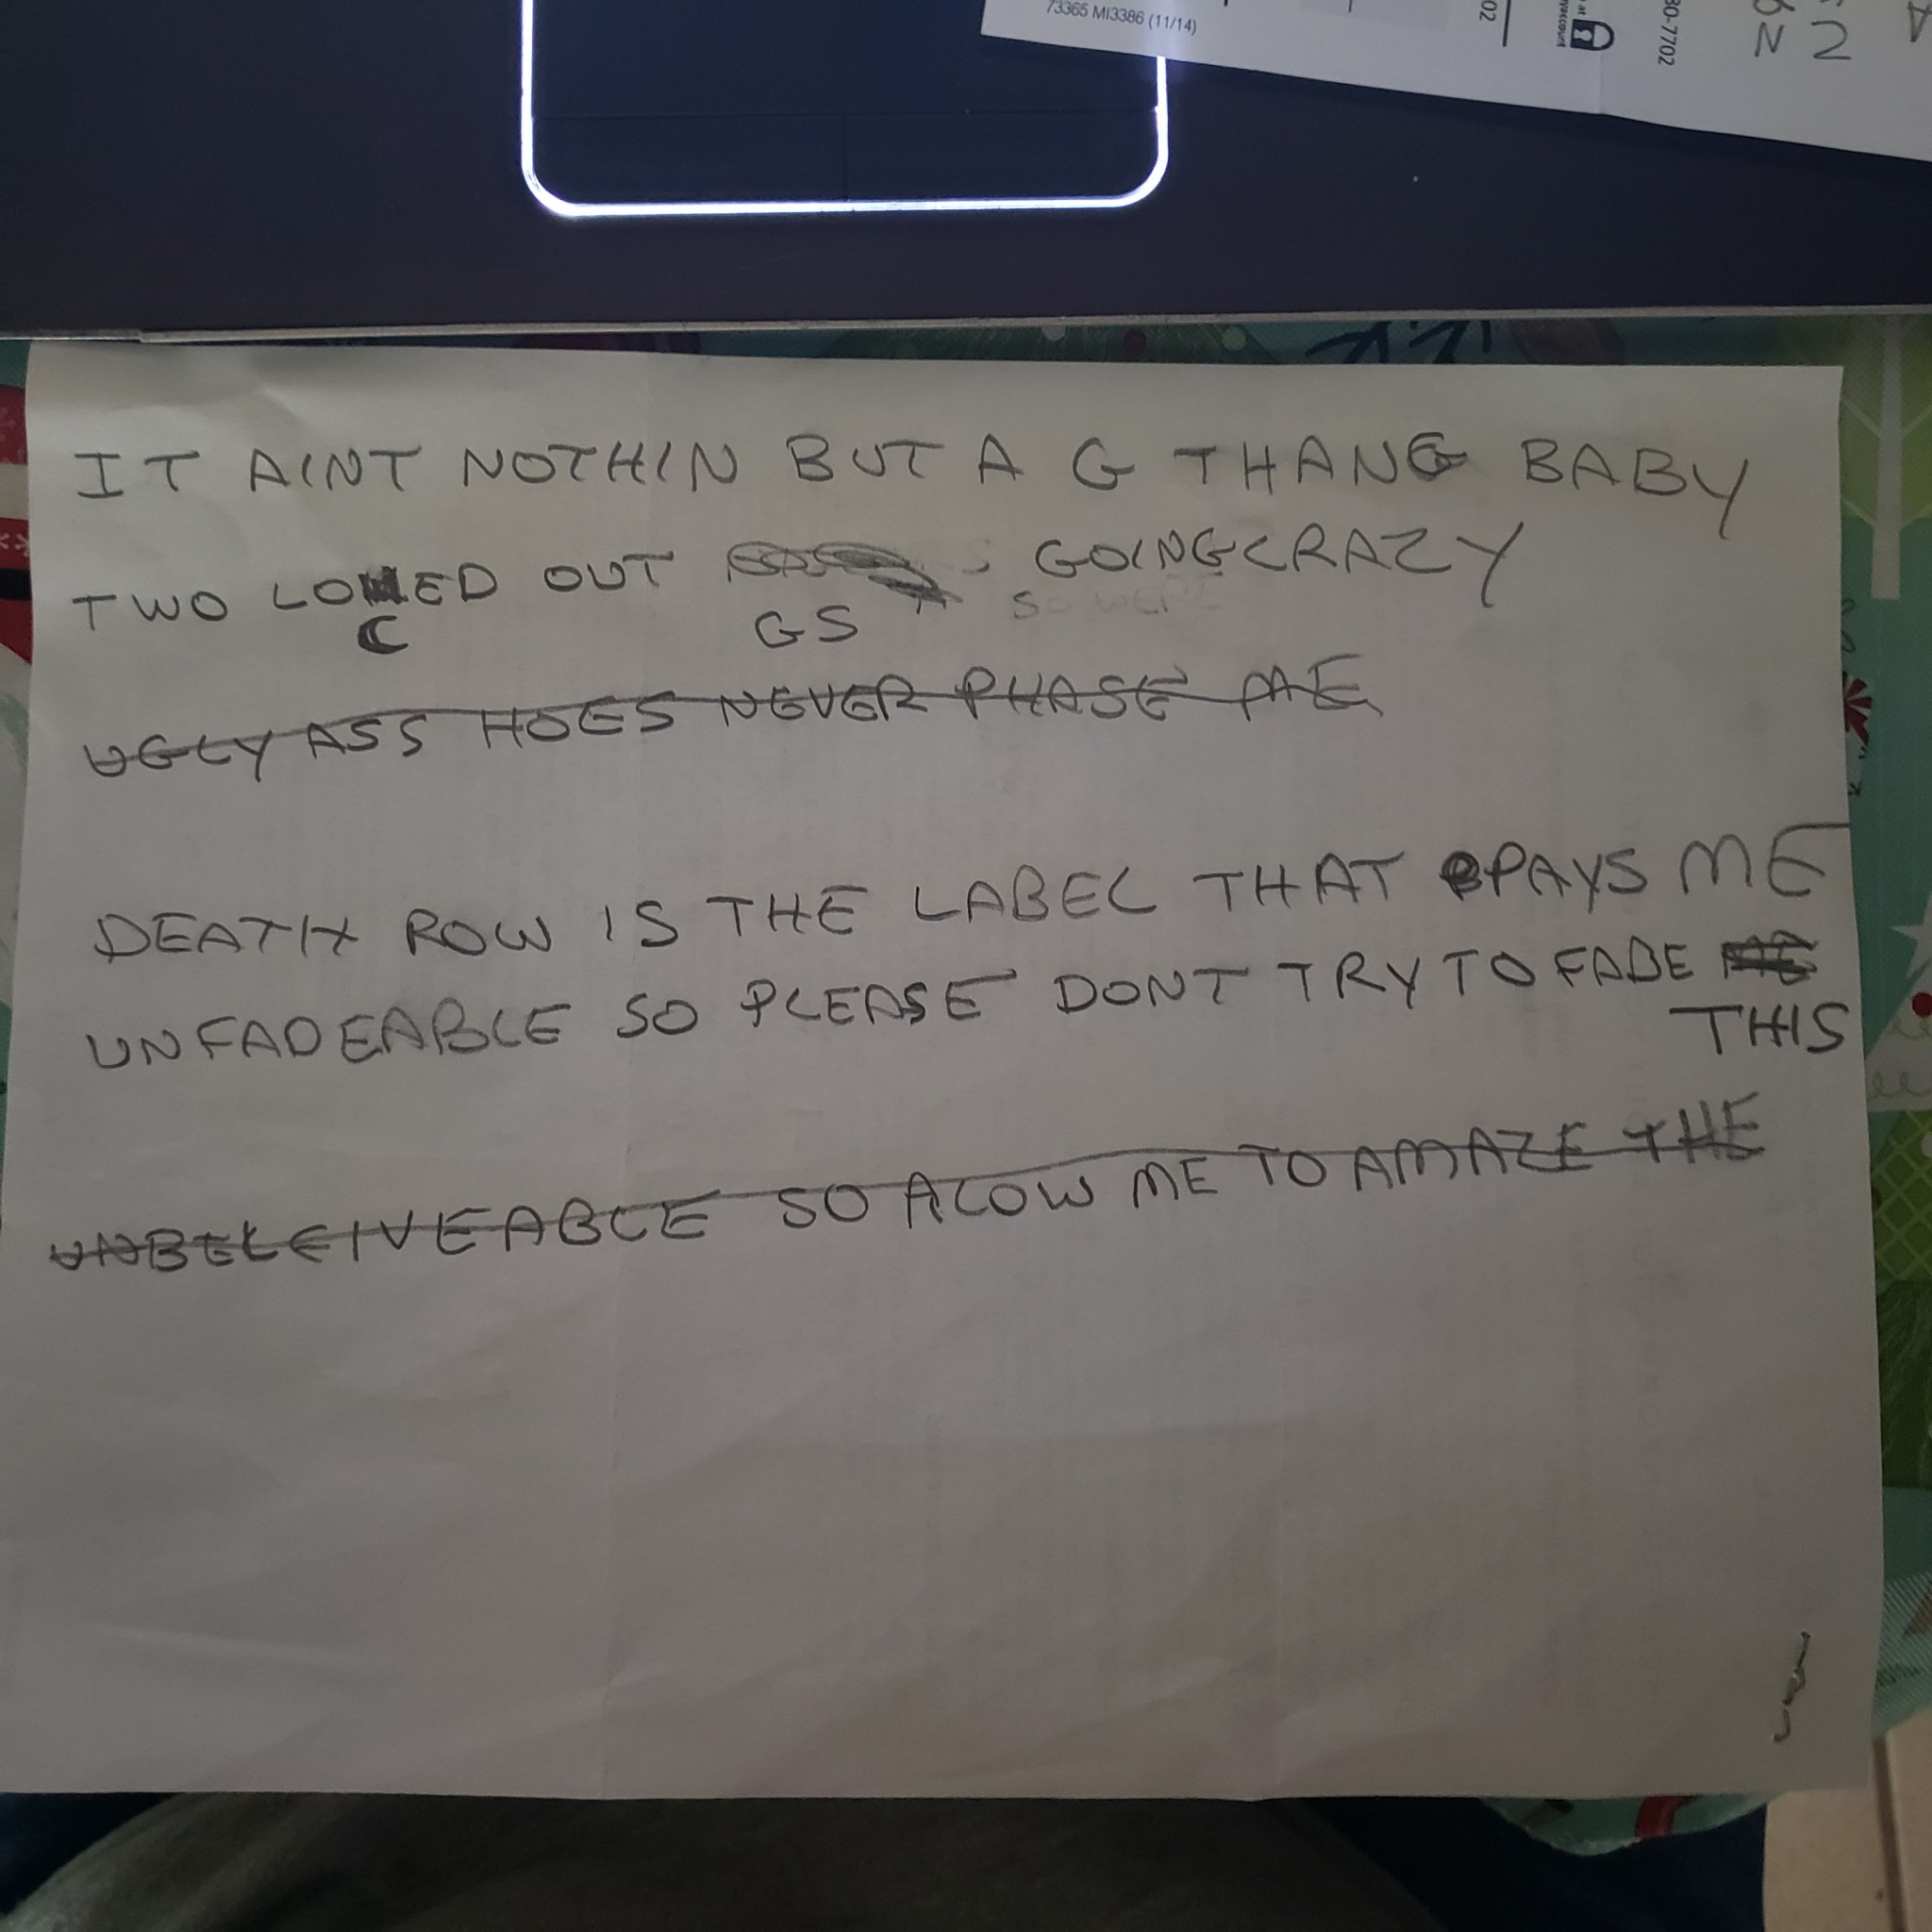 73365 MI3386 (11/14)
02
at
80-7702
N 2
IT AINT NOTHIN BUT A G THANG BABY
TWO LOCED OUT GS GOING CRAZY
UGLY ASS HOES NEVER PHASE ME
DEATH ROW IS THE LABEL THAT PAYS ME
UNFADEABLE SO PLEASE DONT TRY TO FADE
THIS
UNBELEIVEABLE SO ALOW ME TO AMAZE THE